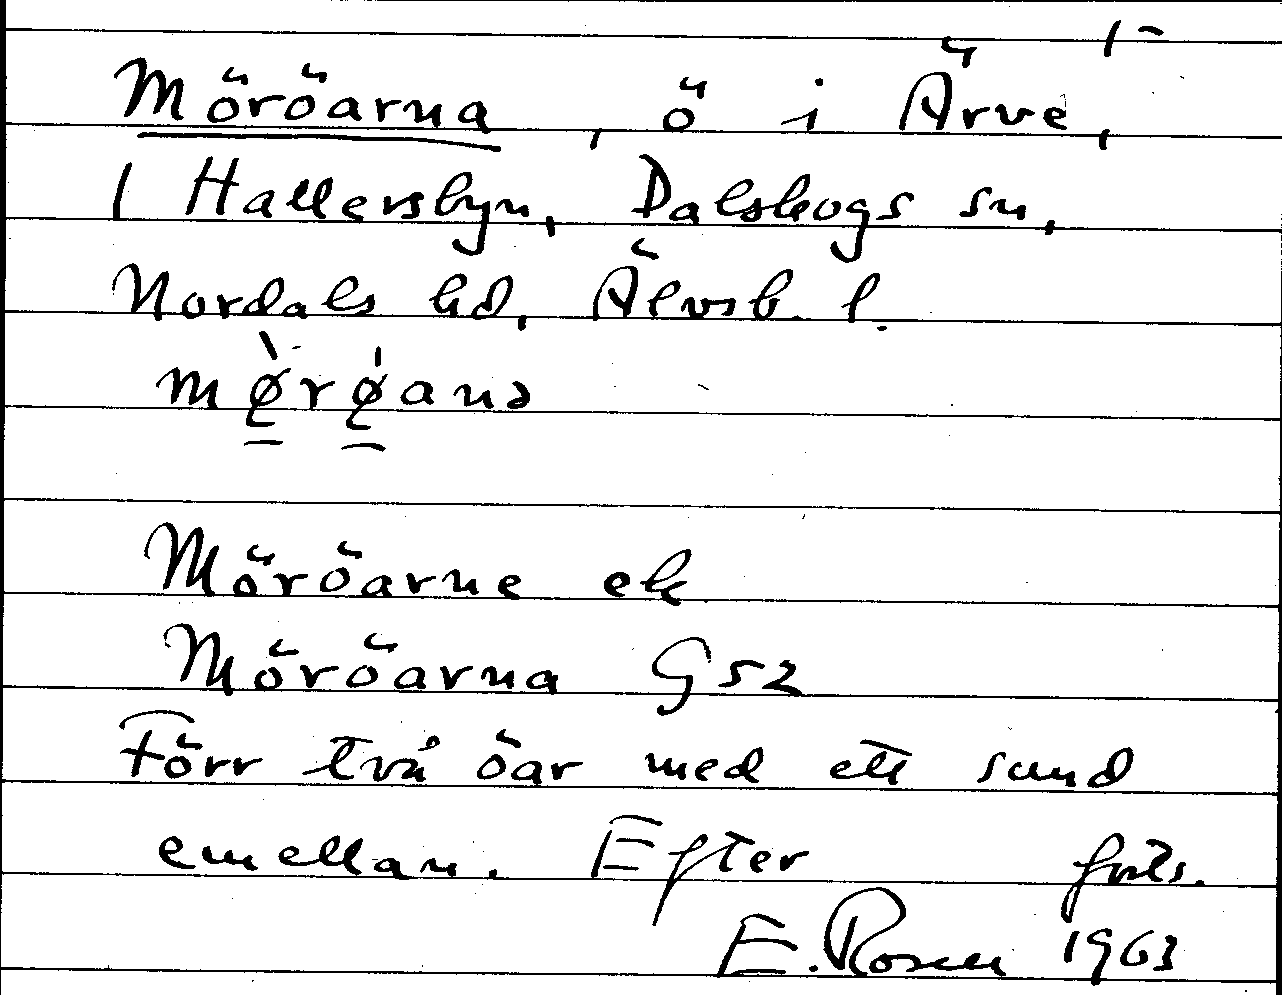 1-
Möröarna, ö i Ärve,
1 Hallersbyn, Dalskogs sn,
Nordals hd, Älvsb. l.
Möröarne el
Möröarna G52
Förr två öar med ett sund
emellan. Efter forts.
E. Rosen 1963